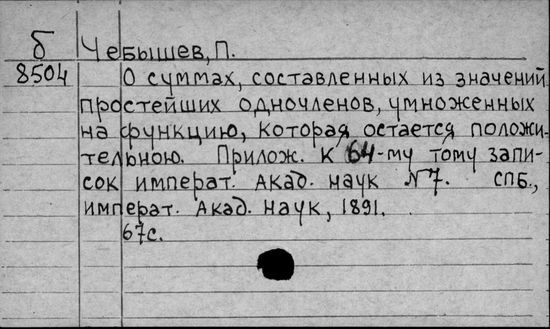 б Чебышев, П.
8504 О суммах, составленных из значений
простейших одночленов, умноженных
на функцию, которая остается положи-
тельною. Прилож. к 64-му тому запи-
сок императ. Акад. наук №7. СПБ.,
императ. Акад. наук, 1891.
67с.